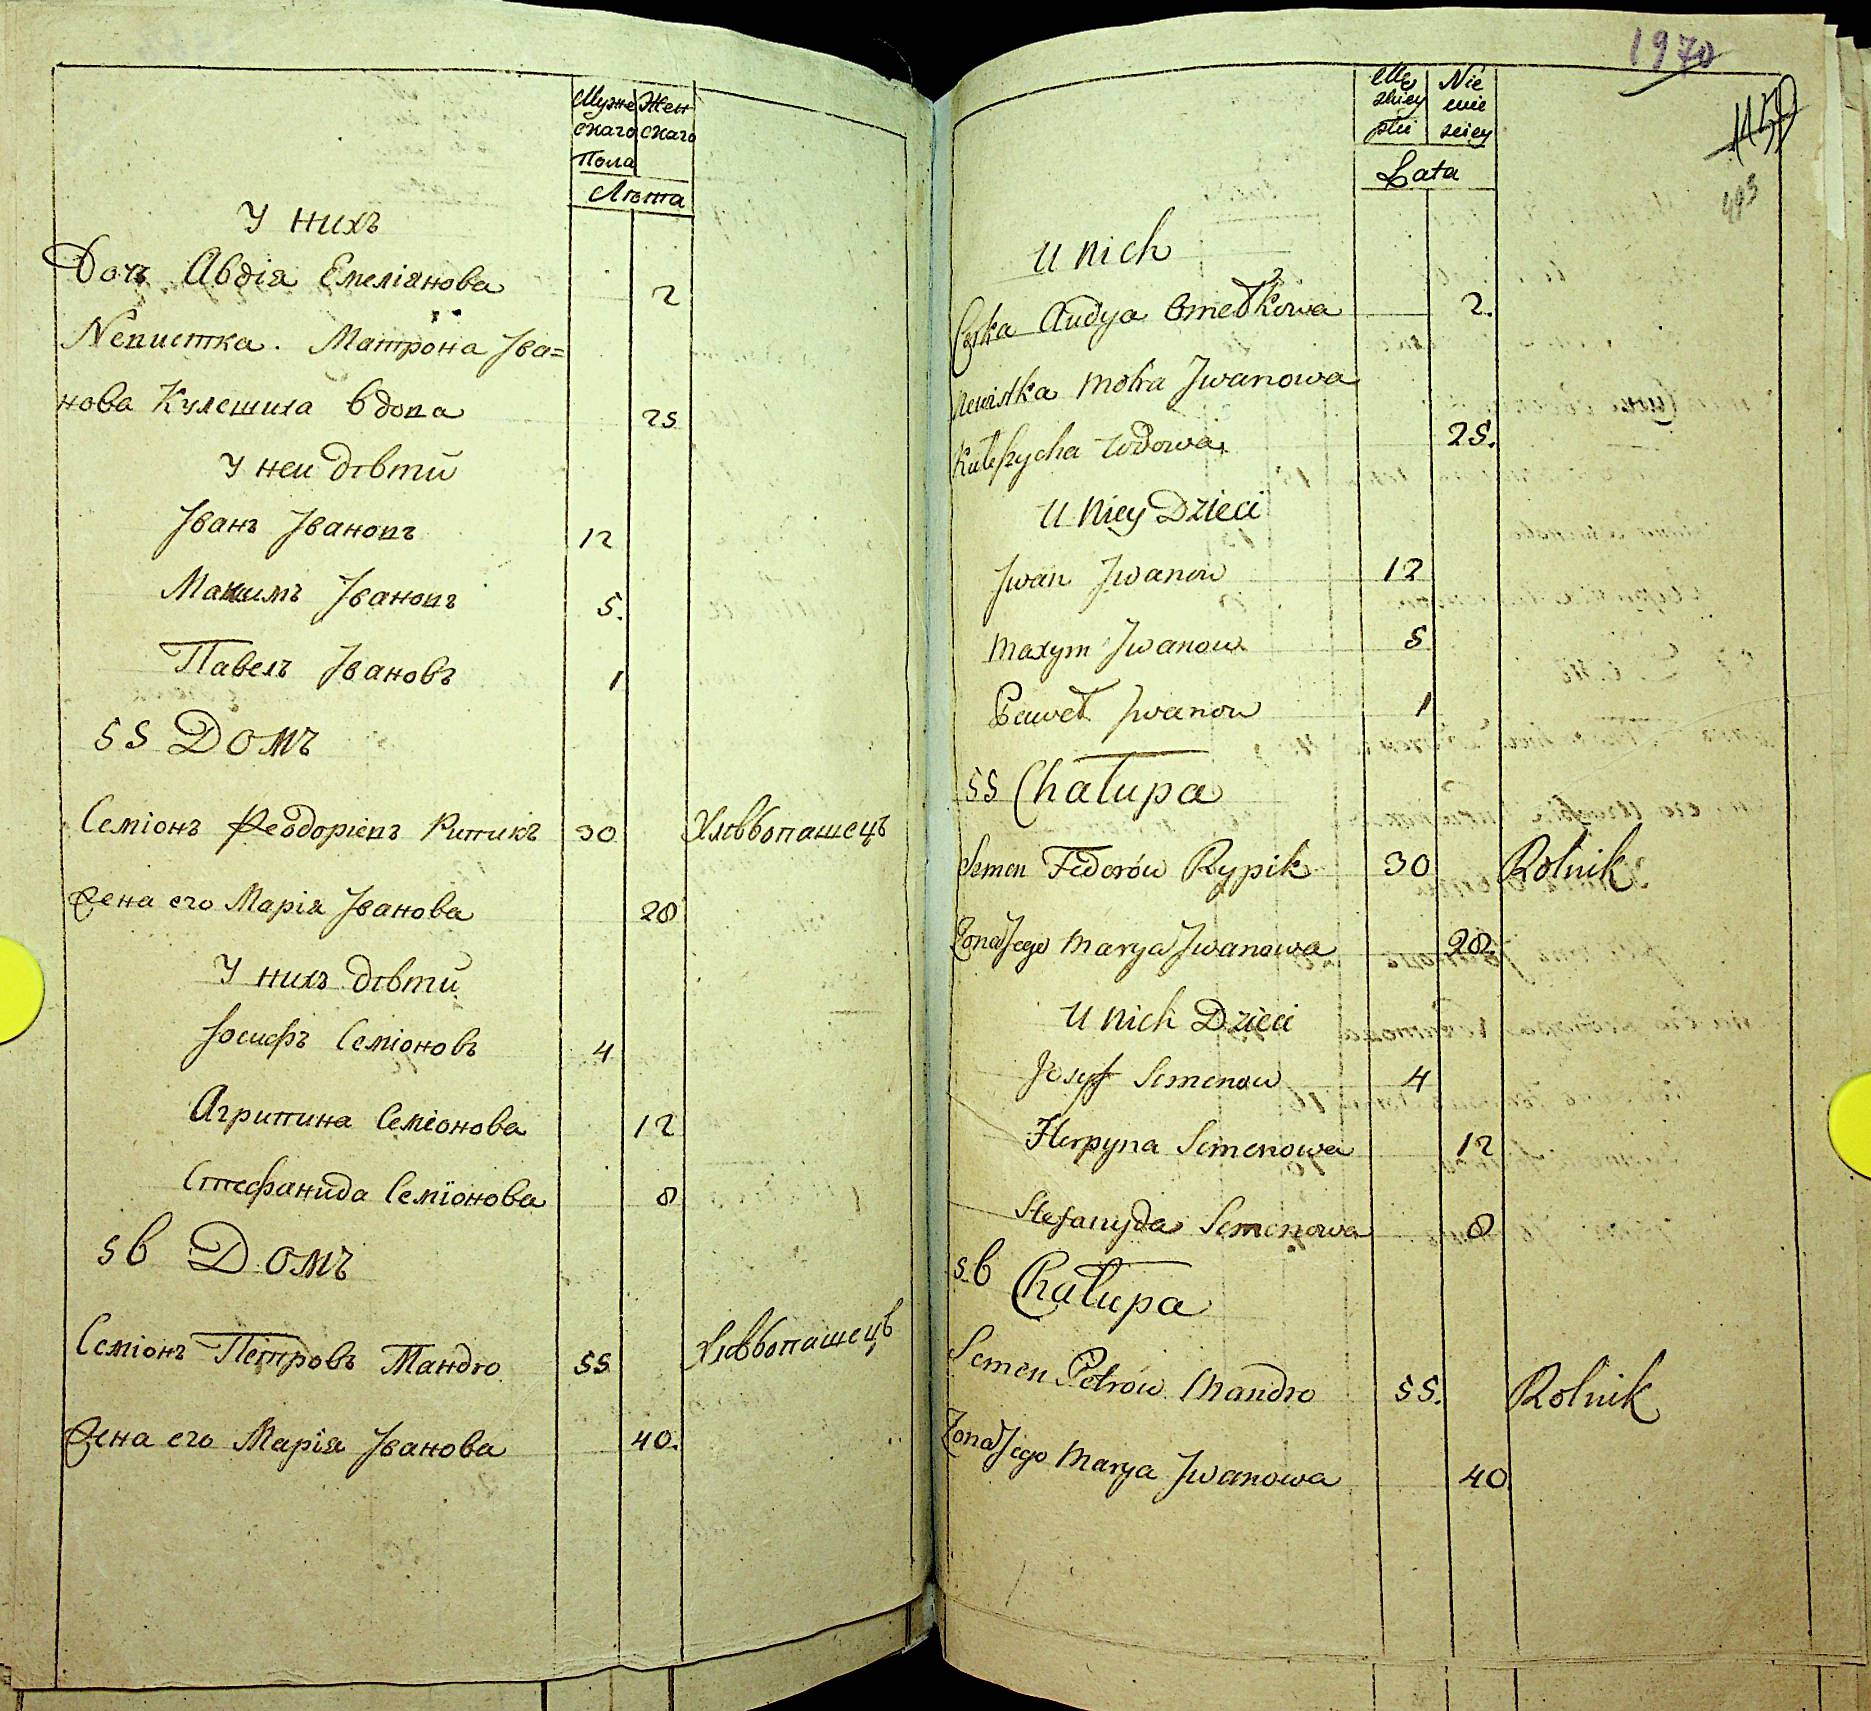 Муже Жен
скаго скаго
Пола
Лѣта
У нихъ
Дочь Авдія Емеліянова 2
Невистка. Матрона Іва=
нова Кулешиха вдова 25
У неи дѣти
Іванъ Івановъ 12
Макимъ Івановъ 5.
Павелъ Івановъ 1
55 Домъ
Семіонъ Феодоріевъ Рипикъ 30 Хлѣбопашецъ
Жена его Марія Іванова 28
У нихъ дѣти
Іосифъ Семіоновъ 4
Агрипина Семіонова 12
Стефанида Семіонова 8
56 Домъ
Семіонъ Петровъ Мандро 55 Хлѣбопашецъ
Жена его Марія Іванова 40.
1970
Męz Nie
skiey wie
płci sciey
Lata
U nich
Corka Audya 2.
Newistka Motra Jwanowa
Kuleszycha wdowa 25.
U Niey Dzieci
Jwan Jwanow 12
Maxym Jwanow 5
Paweł Jwanow 1
55 Chałupa
Semen Fedorów Rypik 30 Rolnik
Zona Jego Marya Jwanowa 28
U nich Dzieci
Josyf Semenow 4
Horpyna Semenowa 12
Stefanyda Semenowa 8
56 Chałupa
Semen Petrów Mandro 55. Rolnik
Zona Jego Marya Jwanowa 40